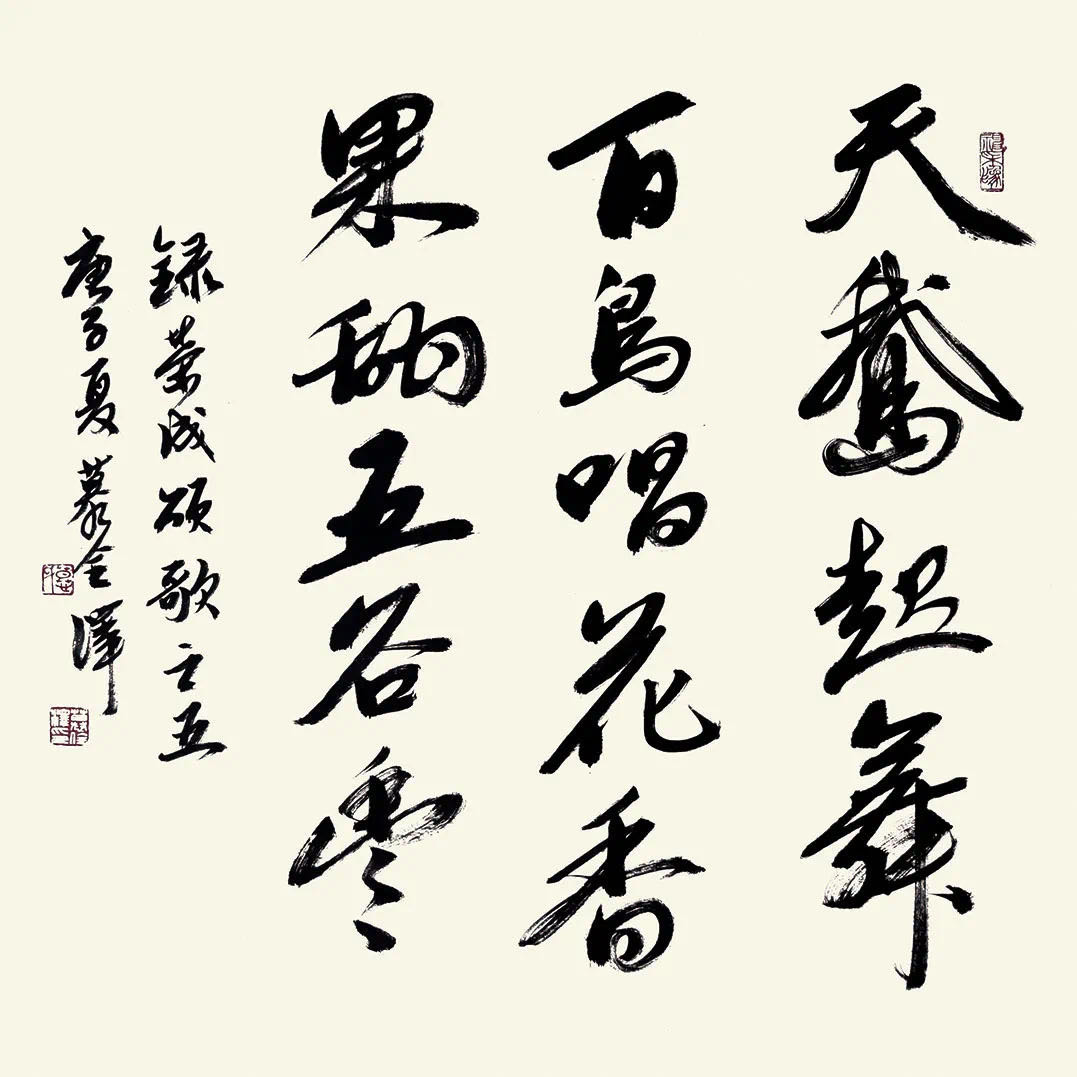 天鵞起舞
百鳥唱花香
果甜五谷
録荣成頌歌之五
庚子夏慕金澤